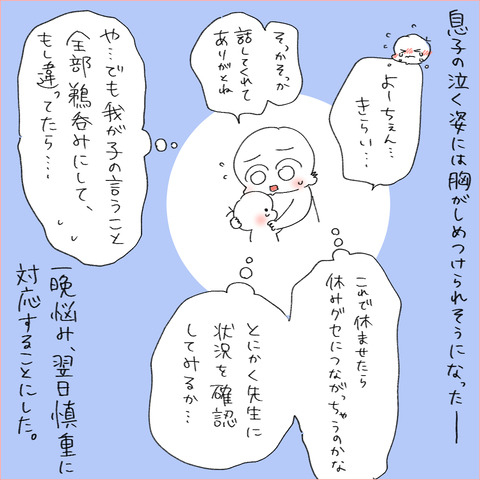 息子の泣く姿には胸がしめつけられそうになった──
よーちぇん…
きらい…
そっかそっか
話してくれて
ありがとね
や…でも我が子の言うこと
全部鵜呑みにして、
もし違ってたら…
これで休ませたら
休みグセにつながっちゃうのかな
とにかく先生に
状況を確認
してみるか…
一晩悩み、翌日慎重に
対応することにした。